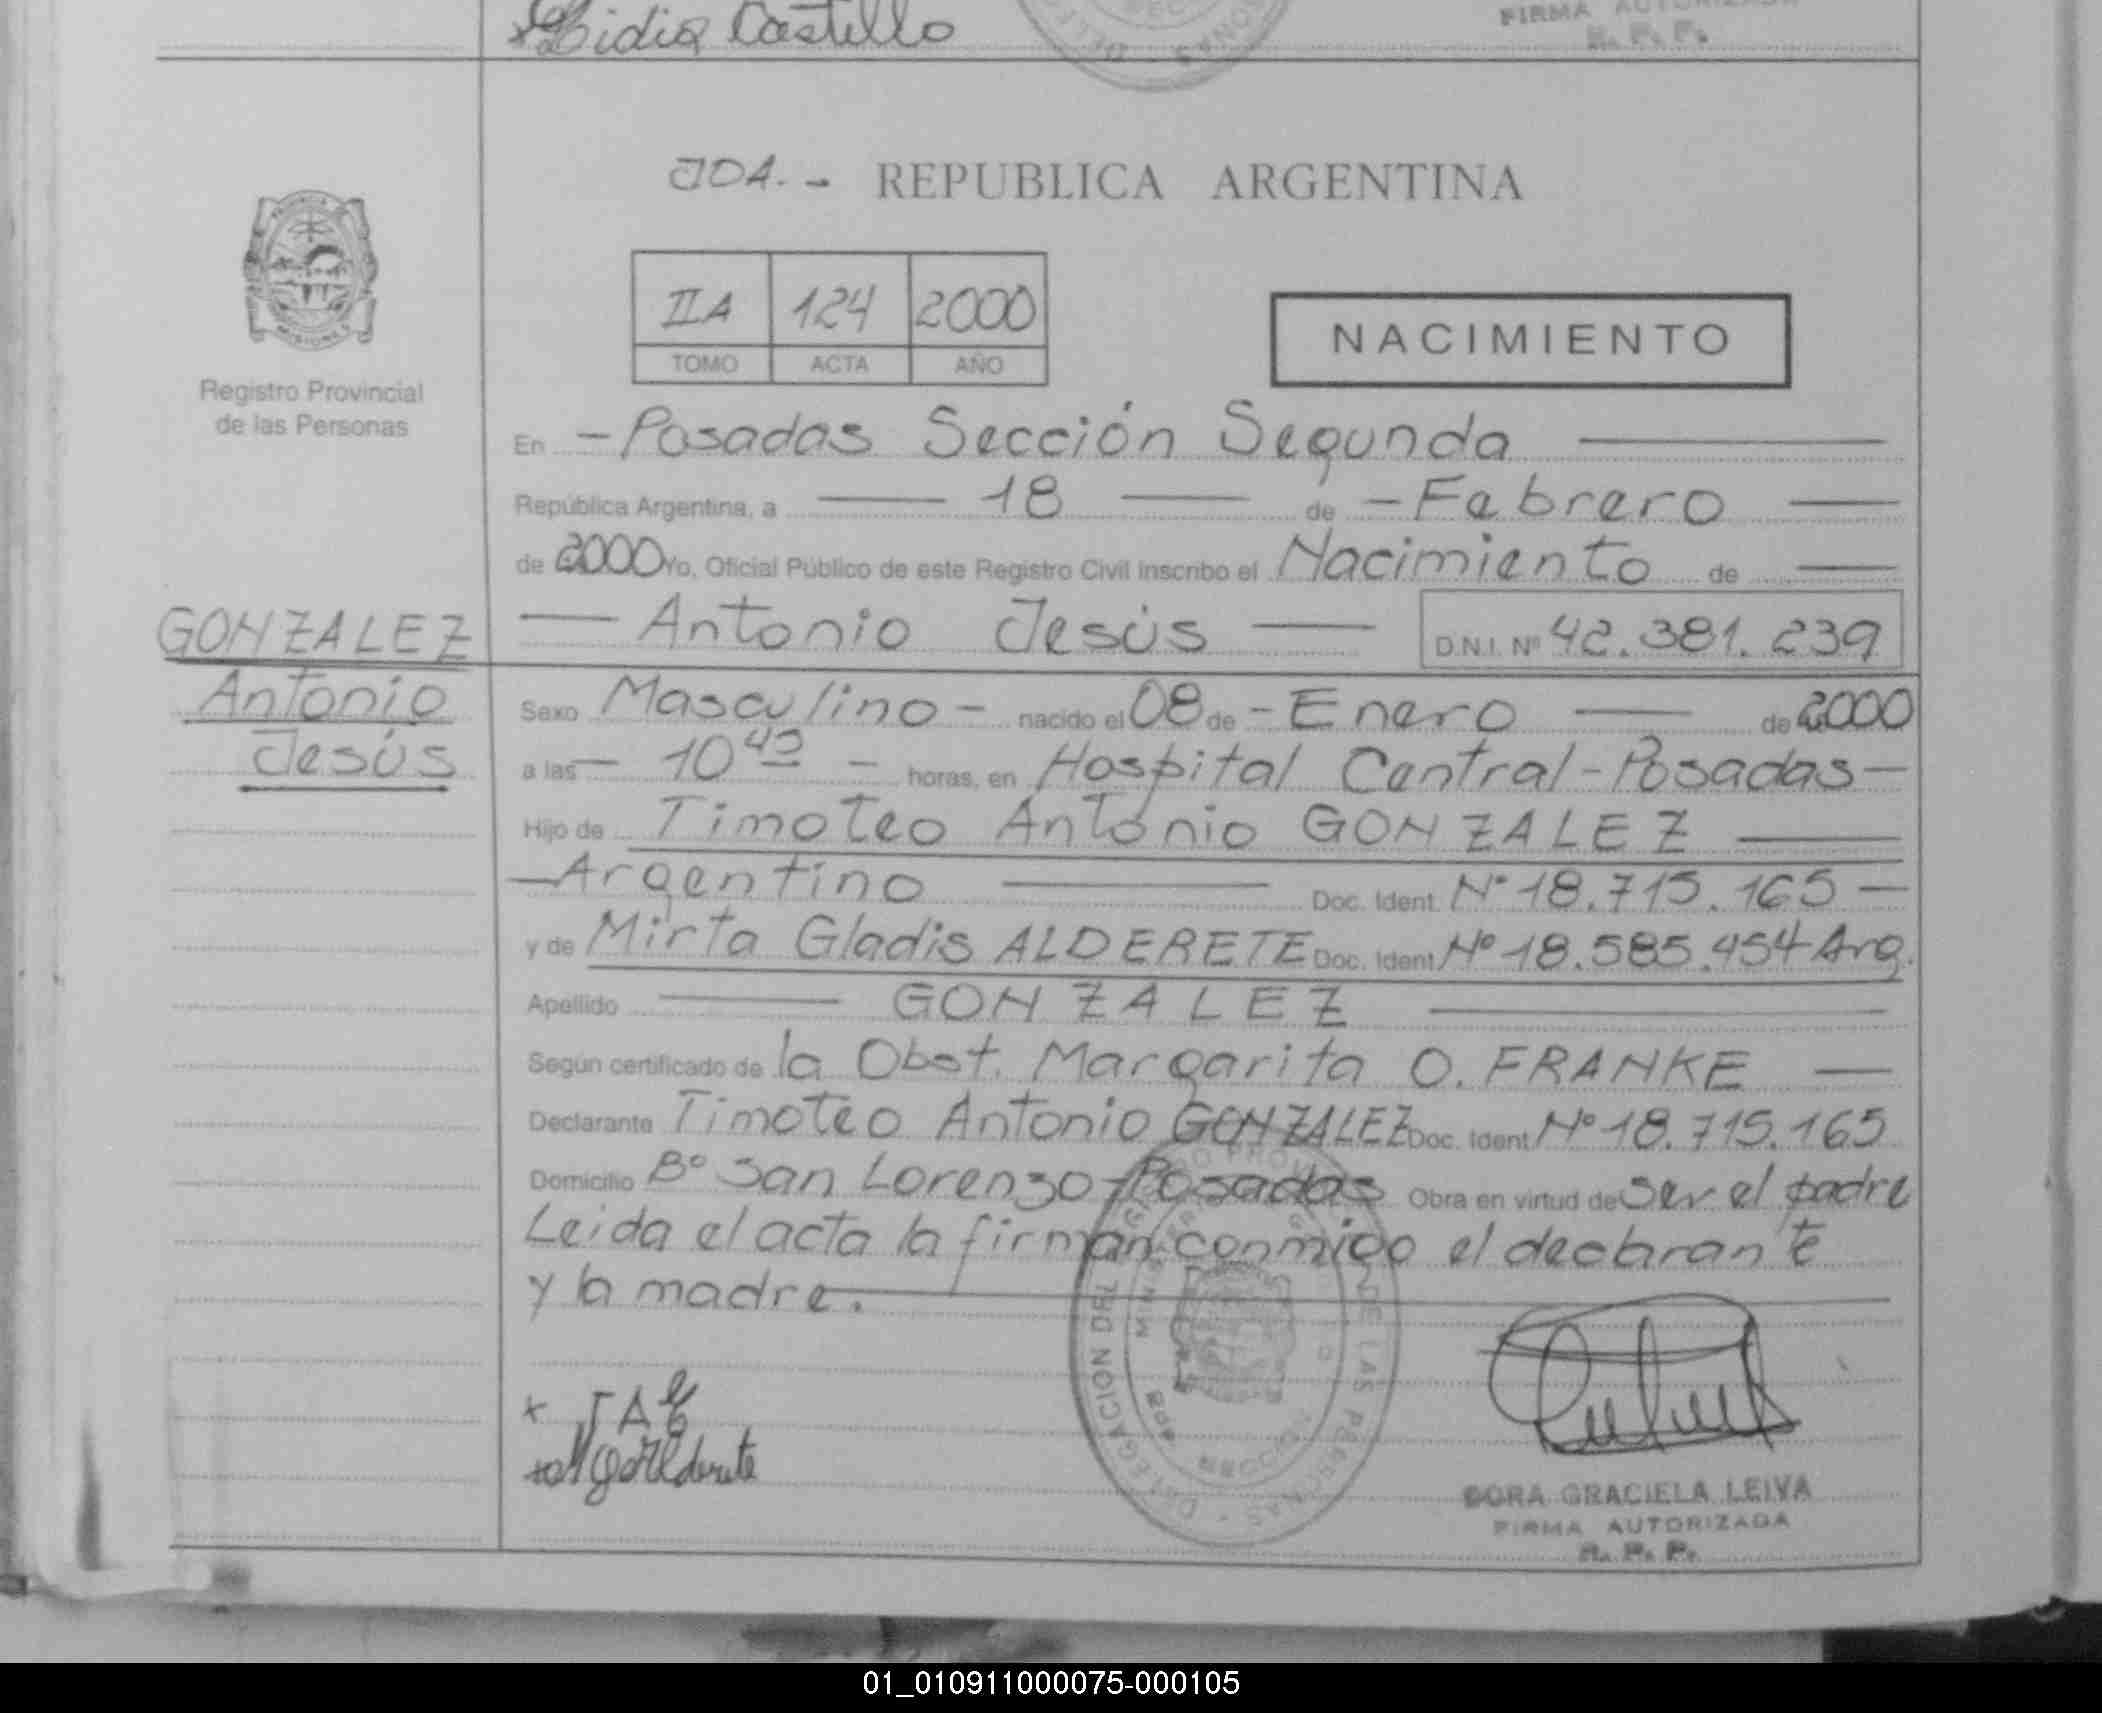 Lidia Castillo
FIRMA AUTORIZADA
R. P. P.
JDA. - REPUBLICA ARGENTINA
IIA 124 2000
TOMO ACTA AÑO
NACIMIENTO
Registro Provincial
de las Personas
En - Posadas Sección Segunda
República Argentina, a 18 de - Febrero
de 2000 Yo, Oficial Público de este Registro Civil inscribo el Nacimiento de
Antonio Jesús D.N.I. Nº 42.381.239
GONZALEZ
Antonio
Jesús
Sexo Masculino - nacido el 08 de - Enero de 2000
a las - 10 45 - horas, en Hospital Central - Posadas -
Hijo de Timoteo Antonio GONZALEZ
Argentino Doc. Ident. Nº 18.715.165 -
y de Mirta Gladis ALDERETE Doc. Ident. Nº 18.585.454 Arg.
Apellido GONZALEZ
Según certificado de la Obst. Margarita O. FRANKE
Declarante Timoteo Antonio GONZALEZ Doc. Ident. Nº 18.715.165
Domicilio Bº San Lorenzo - Posadas Obra en virtud de ser el padre
Leida el acta la firman conmigo el declarante
y la madre.
DELEGACION DEL REGISTRO PROVINCIAL DE LAS PERSONAS
x TAG
DORA GRACIELA LEIVA
FIRMA AUTORIZADA
R. P. P.
01_010911000075-000105